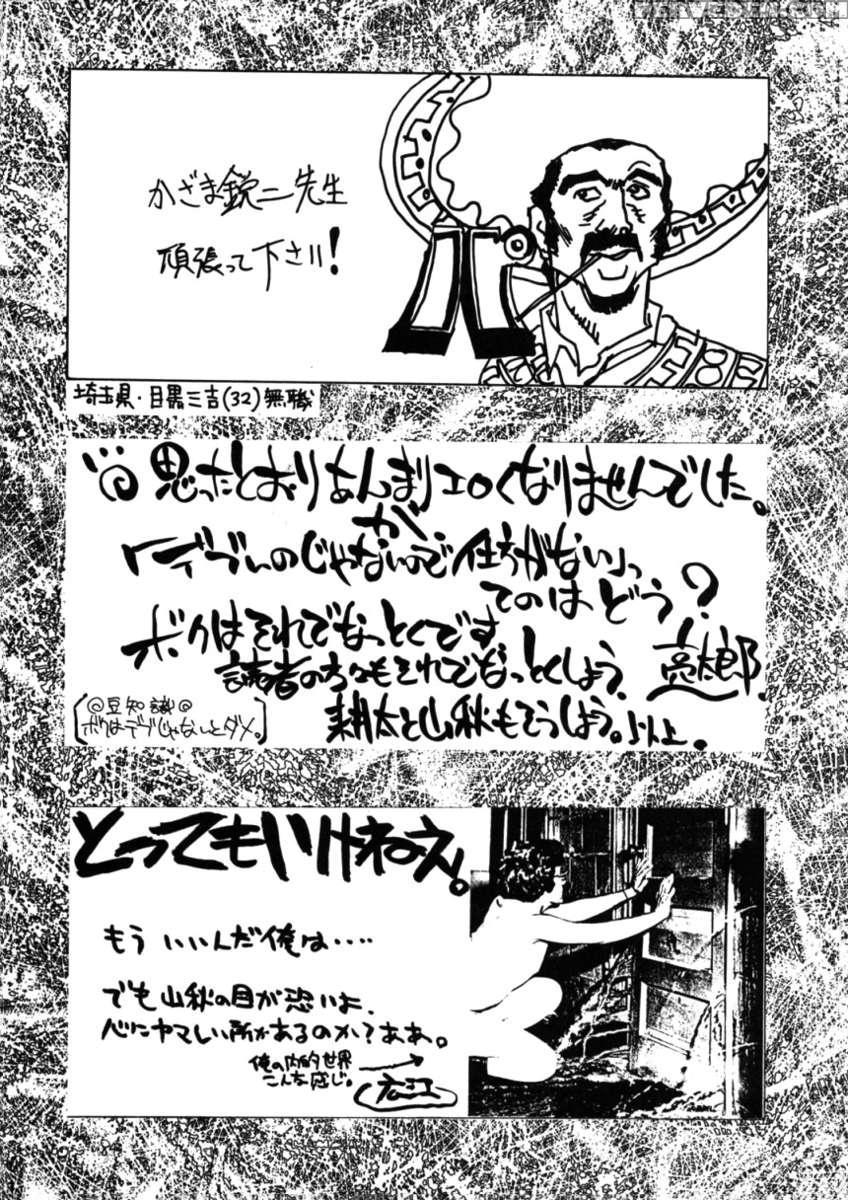 PERVEDEN.COM
かざま鋭二先生
頑張って下さい!
埼玉県・目黒三吉(32)無職
思ったとおりあんまりエロくなりませんでした。
が
「デブいのじゃないので仕方がない」っ
てのはどう?
ボクはそれでなっとくです
読者の方々もそれでなっとくしよう、
亮太郎
耕太と山秋もそうしよう。以上。
@豆知識@
ボクはデブじゃないとダメ。
とってもいけねえ!
もういいんだ俺は・・・・
でも山秋の目が恐いよ、
心にヤマしい所があるのか?ああ。
俺の内的世界
こんな感じ。
広江